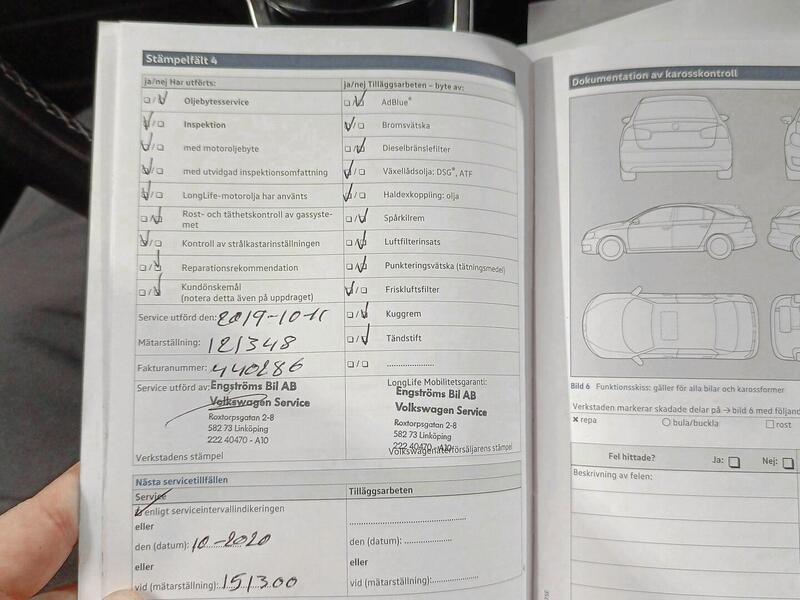 Stämpelfält 4
ja/nej Har utförts:
Oljebytesservice
Inspektion
med motoroljebyte
med utvidgad inspektionsomfattning
LongLife-motorolja har använts
Rost- och täthetskontroll av gassyste-
met
Kontroll av strålkastarinställningen
Reparationsrekommendation
Kundönskemål
(notera detta även på uppdraget)
Service utförd den: 2019-10-11
Mätarställning: 121348
Fakturanummer: 440286
Service utförd av:
Engströms Bil AB
Volkswagen Service
Roxtorpsgatan 2-8
582 73 Linköping
222 40470 - A10
Verkstadens stämpel
ja/nej Tilläggsarbeten – byte av:
AdBlue®
Bromsvätska
Dieselbränslefilter
Växellådsolja: DSG®, ATF
Haldexkoppling: olja
Spårkilrem
Luftfilterinsats
Punkteringsvätska (tätningsmedel)
Friskluftsfilter
Kuggrem
Tändstift
LongLife Mobilitetsgaranti:
Engströms Bil AB
Volkswagen Service
Roxtorpsgatan 2-8
582 73 Linköping
222 40470 - A10
Volkswagenåterförsäljarens stämpel
Nästa servicetillfällen
Service
enligt serviceintervallindikeringen
eller
den (datum): 10-2020
eller
vid (mätarställning): 151300
Tilläggsarbeten
den (datum):
eller
vid (mätarställning):
Dokumentation av karosskontroll
Bild 6 Funktionsskiss: gäller för alla bilar och karossformer
Verkstaden markerar skadade delar på → bild 6 med följand
repa
bula/buckla
rost
Fel hittade? Ja: Nej:
Beskrivning av felen: